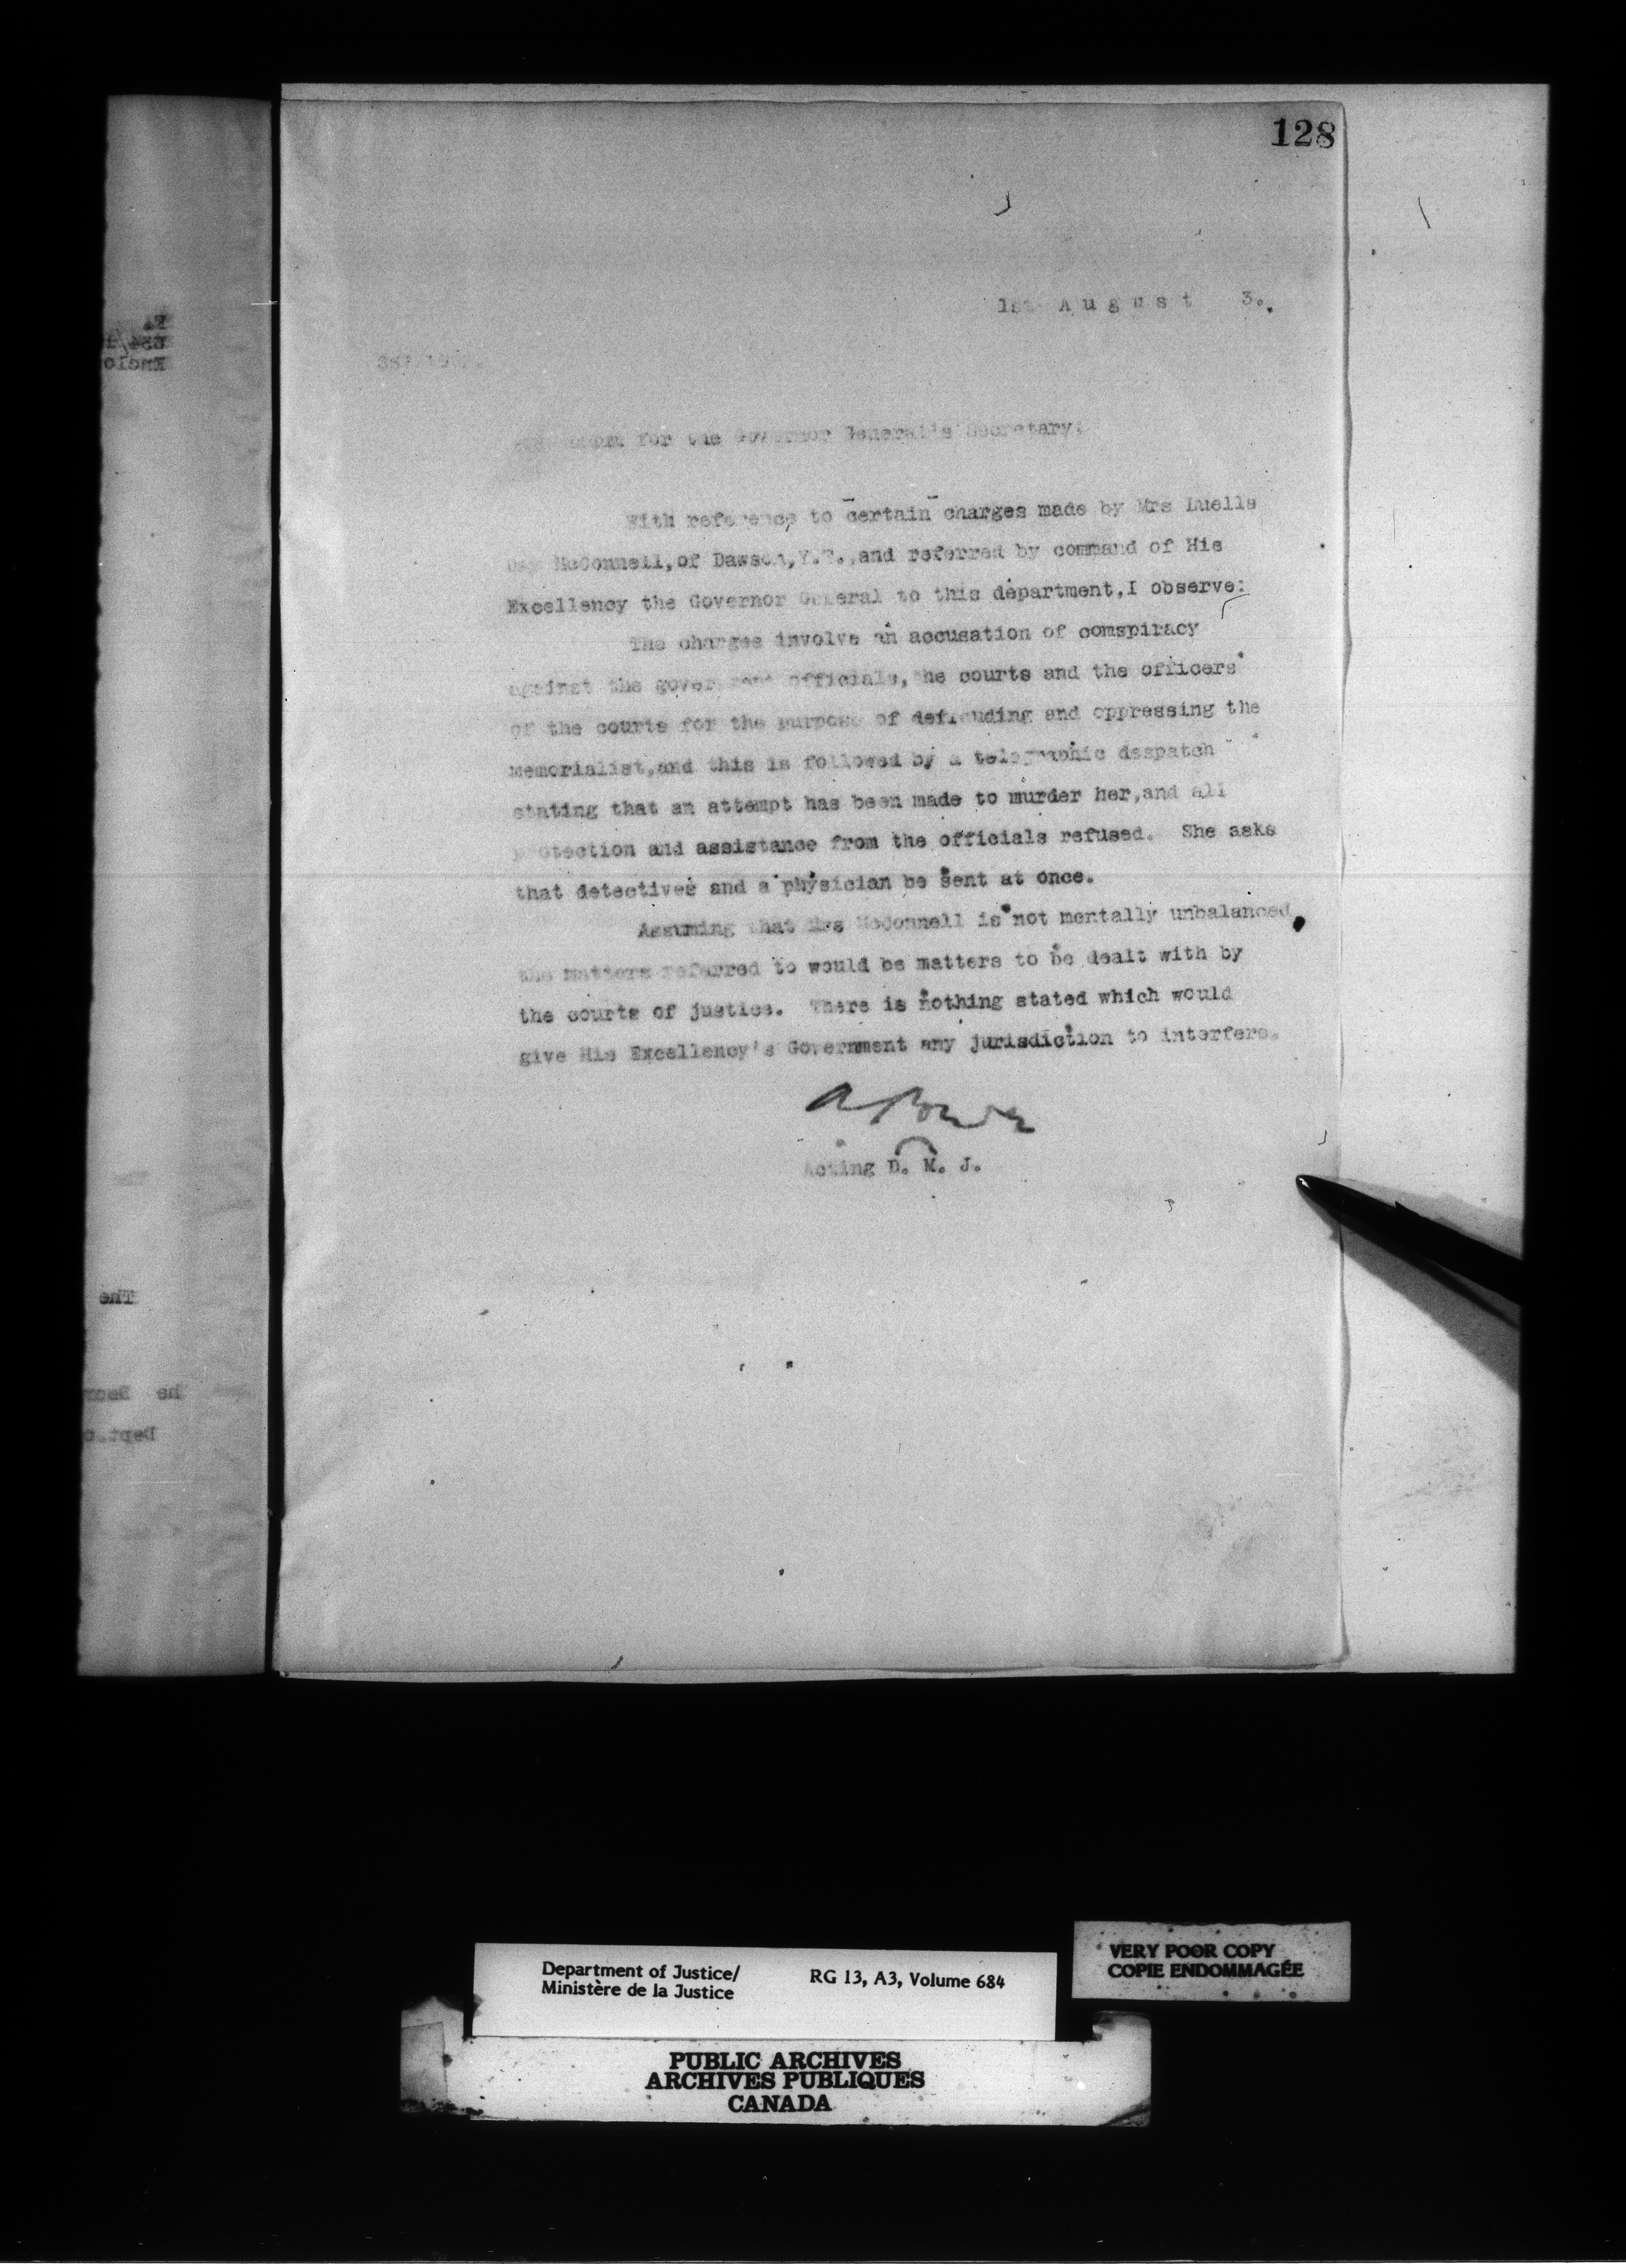 128
1st August 3.
for the Governor General's Secretary:
With reference to certain charges made by Mrs Luella
Day McConnell, of Dawson, Y.T., and referred by command of His
Excellency the Governor General to this department, I observe:
The charges involve an accusation of comspiracy
against the government officials, the courts and the officers
of the courts for the purpose of defrauding and oppressing the
memorialist, and this is followed by a telegraphic despatch
stating that an attempt has been made to murder her, and all
protection and assistance from the officials refused. She asks
that detectives and a physician be sent at once.
Assuming that Mrs McConnell is not mentally unbalanced,
the matters referred to would be matters to be dealt with by
the courts of justice. There is nothing stated which would
give His Excellency's Government any jurisdiction to interfere.
A Power
Acting D. M. J.
The
Dept.
Department of Justice/
Ministère de la Justice
RG 13, A3, Volume 684
VERY POOR COPY
COPIE ENDOMMAGÉE
PUBLIC ARCHIVES
ARCHIVES PUBLIQUES
CANADA